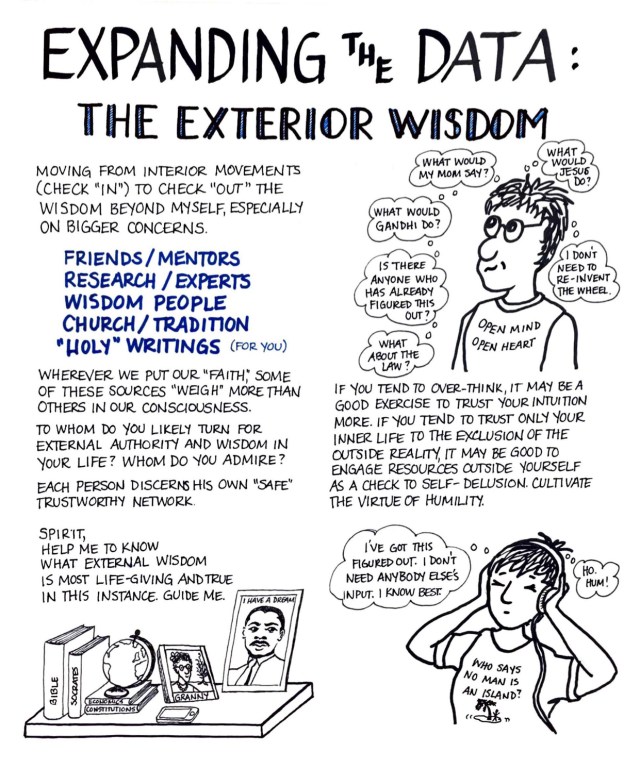 EXPANDING THE DATA:
THE EXTERIOR WISDOM
MOVING FROM INTERIOR MOVEMENTS
(CHECK "IN") TO CHECK "OUT" THE
WISDOM BEYOND MYSELF, ESPECIALLY
ON BIGGER CONCERNS.
FRIENDS/MENTORS
RESEARCH/EXPERTS
WISDOM PEOPLE
CHURCH/TRADITION
"HOLY" WRITINGS (FOR YOU)
WHEREVER WE PUT OUR "FAITH," SOME
OF THESE SOURCES "WEIGH" MORE THAN
OTHERS IN OUR CONSCIOUSNESS.
TO WHOM DO YOU LIKELY TURN FOR
EXTERNAL AUTHORITY AND WISDOM IN
YOUR LIFE? WHOM DO YOU ADMIRE?
EACH PERSON DISCERNS HIS OWN "SAFE"
TRUSTWORTHY NETWORK.
SPIRIT,
HELP ME TO KNOW
WHAT EXTERNAL WISDOM
IS MOST LIFE-GIVING AND TRUE
IN THIS INSTANCE. GUIDE ME.
BIBLE
SOCRATES
ECONOMICS
CONSTITUTIONS
GRANNY
I HAVE A DREAM
WHAT WOULD
MY MOM SAY?
WHAT
WOULD
JESUS
DO?
WHAT WOULD
GANDHI DO?
IS THERE
ANYONE WHO
HAS ALREADY
FIGURED THIS
OUT?
I DON'T
NEED TO
RE-INVENT
THE WHEEL.
WHAT
ABOUT THE
LAW?
OPEN MIND
OPEN HEART
IF YOU TEND TO OVER-THINK, IT MAY BE A
GOOD EXERCISE TO TRUST YOUR INTUITION
MORE. IF YOU TEND TO TRUST ONLY YOUR
INNER LIFE TO THE EXCLUSION OF THE
OUTSIDE REALITY, IT MAY BE GOOD TO
ENGAGE RESOURCES OUTSIDE YOURSELF
AS A CHECK TO SELF-DELUSION. CULTIVATE
THE VIRTUE OF HUMILITY.
I'VE GOT THIS
FIGURED OUT. I DON'T
NEED ANYBODY ELSE'S
INPUT. I KNOW BEST.
HO.
HUM!
WHO SAYS
NO MAN IS
AN ISLAND?